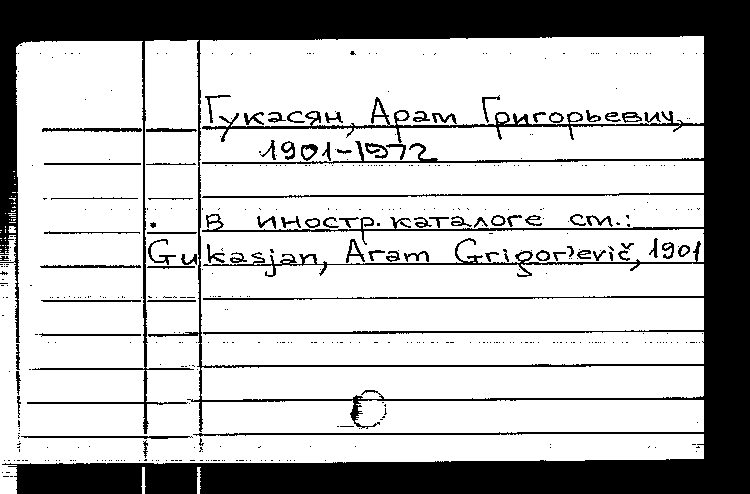 Гукасян, Арат Григорьевич,
1901-1972
в иностр. каталоге см.:
Gukasjan, Aram Grigor'evič, 1901